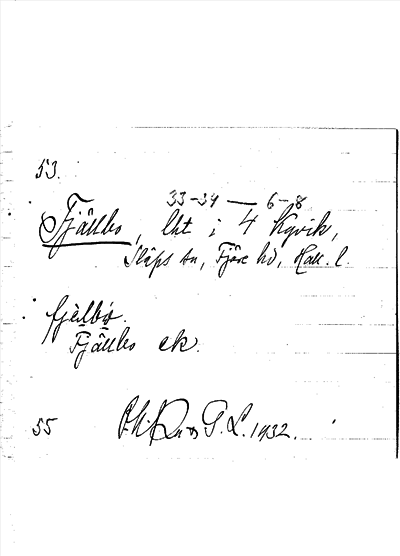 53.
33-34 — 6-8
Fjällbo, lht i 4 Kyvik,
Släps sn, Fjäre hd, Hall. l.
fjèlbo.
Fjällbo ek.
55 G. L. 1932.